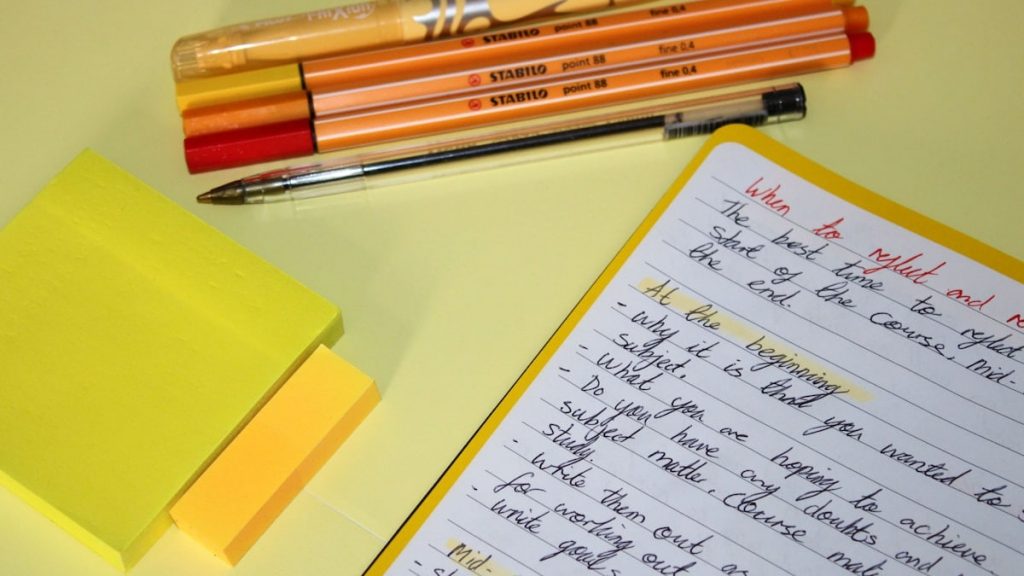 STABILO point 88 fine 0,4
STABILO point 88 fine 0,4
STABILO point 88 fine 0,4
When to reflect and
The best time to reflect
start of the course, mid-
the end
At the beginning
- why it is that you wanted to
subject.
- what you are hoping to achieve
- Do you have any doubts and
subject matter, course
study
- write them out
- for working out
write goals
Mid-